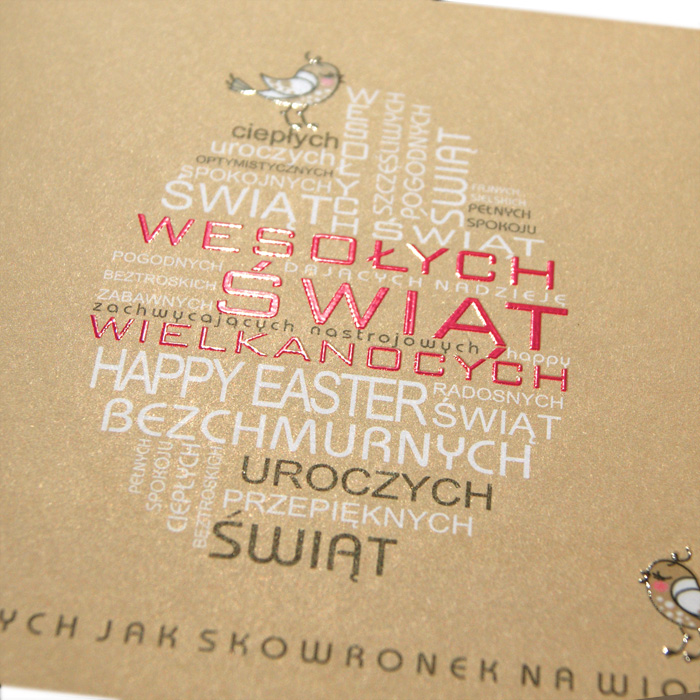 ciepłych
uroczych
OPTYMISTYCZNYCH
SPOKOJNYCH
ŚWIĄT
WESOŁYCH
SZCZĘŚLIWYCH
POGODNYCH
ŚWIĄT
PEŁNYCH
SPOKOJU
ŚWIĄT
WESOŁYCH
POGODNYCH
DAJĄCYCH NADZIEJĘ
BEZTROSKICH
ŚWIĄT
ZABAWNYCH
zachwycających nastrojowych happy
WIELKANOCYCH
HAPPY EASTER
RADOSNYCH
ŚWIĄT
BEZCHMURNYCH
PEŁNYCH
SPOKOJU
CIEPŁYCH
BEZTROSKICH
UROCZYCH
PRZEPIĘKNYCH
ŚWIĄT
YCH JAK SKOWRONEK NA WIO